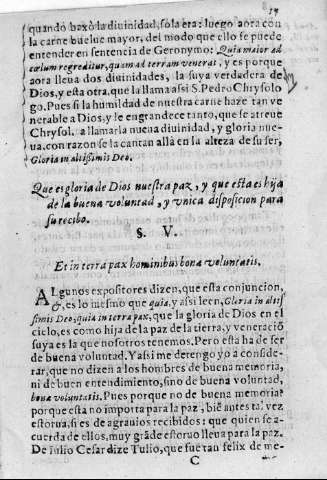 17
quando baxò la diuinidad, sola era: luego aora con
la carne buelue mayor, del modo que ello se puede
entender en sentencia de Geronymo: Quia maior ad
cœlum regreditur, quam ad terram venerat, y es porque
aora lleua dos diuinidades, la suya verdadera de
Dios, y esta otra, que la llama assi S. Pedro Chrysolo
go. Pues si la humildad de nuestra carne haze tan ve
nerable a Dios, y le engrandece tanto, que se atreue
Chrysol. a llamarla nueua diuinidad, y gloria nue-
ua, con razon se la cantan allà en la alteza de su ser,
Gloria in altissimis Deo.
Que es gloria de Dios nuestra paz, y que esta es hija
de la buena voluntad, y vnica disposicion para
su recibo.
§. V.
Et in terra pax hominibus bonæ voluntatis.
ALgunos expositores dizen, que esta conjuncion,
&, es lo mesmo que quia, y assi leen, Gloria in altis
simis Deo, quia in terra pax, que la gloria de Dios en el
cielo, es como hija de la paz de la tierra, y veneraciõ
suya es la que nosotros tenemos. Pero esta ha de ser
de buena voluntad. Ya si me detengo yo a conside-
rar, que no dizen a los hombres de buena memoria,
ni de buen entendimiento, sino de buena voluntad,
bonæ voluntatis. Pues porque no de buena memoria?
porque esta no importa para la paz, biẽ antes tal vez
estorua, si es de agrauios recibidos: que quien se a-
cuerda de ellos, muy grãde estoruo lleua para la paz.
De Iulio Cesar dize Tulio, que fue tan felix de me-
C